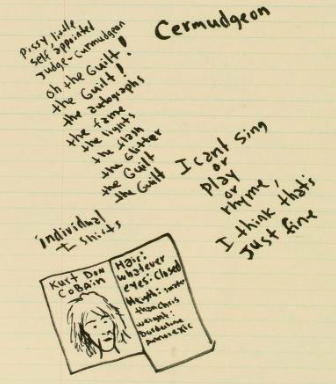 Cermudgeon
Pissy little
self appointed
Judge-Curmudgeon
oh the Guilt!
the Guilt!
the autographs
the fame
the lights
the flash
the Glitter
the Guilt
the Guilt
I cant sing
or
play
or
rhyme,
I think that's
Just fine
individual
T shirts
Kurt Don
CoBain
Hair:
whatever
eyes: Closed
than Chris
weight:
Anorexic